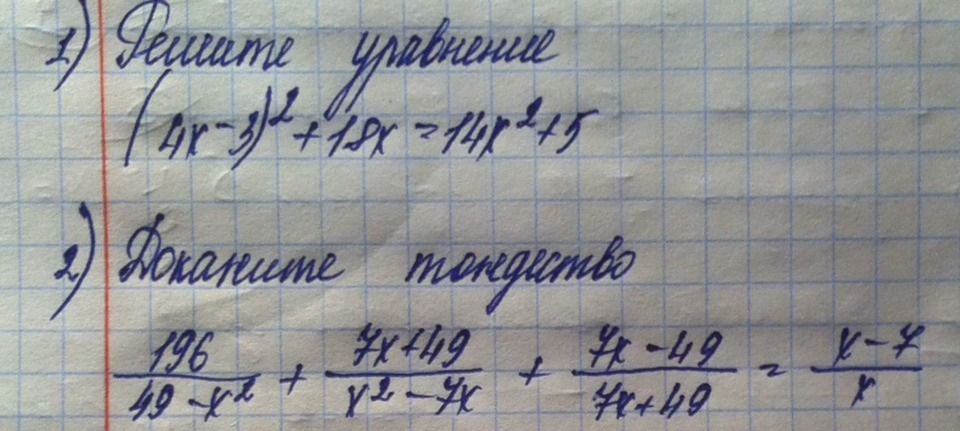 1) Решите уравнение
(4x-3)²+18x=14x²+5
2) Докажите тождество
196/(49-x²) + (7x+49)/(x²-7x) + (7x-49)/(7x+49) = (x-7)/x